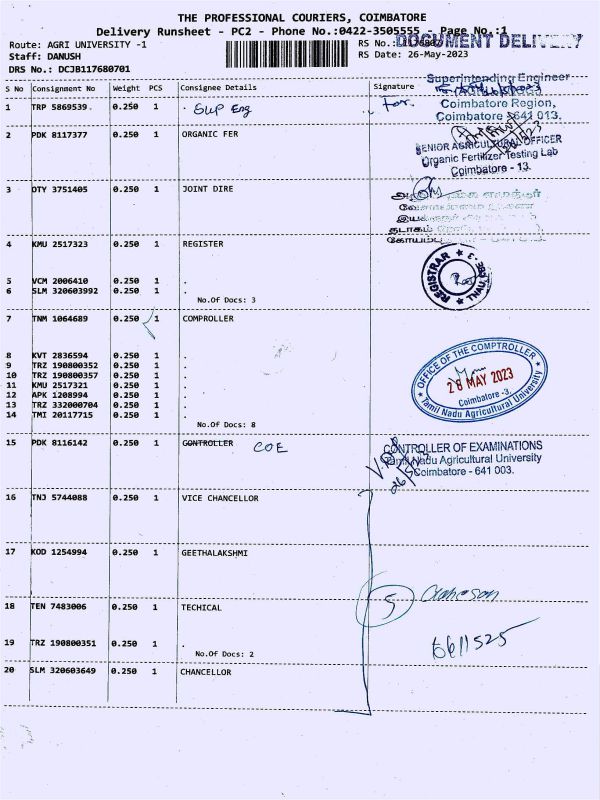 THE PROFESSIONAL COURIERS, COIMBATORE
Delivery Runsheet - PC2 - Phone No.:0422-3505555 - Page No.:1
Route: AGRI UNIVERSITY -1
RS No.:
DOCUMENT DELIVERY
Staff: DANUSH
RS Date: 26-May-2023
DRS No.: DCJB117680701
S No Consignment No Weight PCS Consignee Details Signature
Superintending Engineer
1 TRP 5869539 0.250 1 . Sup Eng
For.
Coimbatore Region,
Coimbatore - 641 013.
2 PDK 8117377 0.250 1 ORGANIC FER
SENIOR AGRICULTURAL OFFICER
Organic Fertilizer Testing Lab
Coimbatore - 13.
3 OTY 3751405 0.250 1 JOINT DIRE
4 KMU 2517323 0.250 1 REGISTER
REGISTRAR ★ TNAU, CBE-3 ★
5 VCM 2006410 0.250 1 .
6 SLM 320603992 0.250 1 .
No.Of Docs: 3
7 TNM 1064689 0.250 1 COMPROLLER
8 KVT 2836594 0.250 1 .
9 TRZ 190800352 0.250 1 .
10 TRZ 190800357 0.250 1 .
11 KMU 2517321 0.250 1 .
12 APK 1208994 0.250 1 .
13 TRZ 332000704 0.250 1 .
14 TMI 20117715 0.250 1 .
No.Of Docs: 8
OFFICE OF THE COMPTROLLER
26 MAY 2023
Coimbatore -3.
Tamil Nadu Agricultural University
15 PDK 8116142 0.250 1 CONTROLLER COE
CONTROLLER OF EXAMINATIONS
Tamil Nadu Agricultural University
Coimbatore - 641 003.
16 TNJ 5744088 0.250 1 VICE CHANCELLOR
17 KOD 1254994 0.250 1 GEETHALAKSHMI
5
18 TEN 7483006 0.250 1 TECHICAL
6611525
19 TRZ 190800351 0.250 1 .
No.Of Docs: 2
20 SLM 320603649 0.250 1 CHANCELLOR